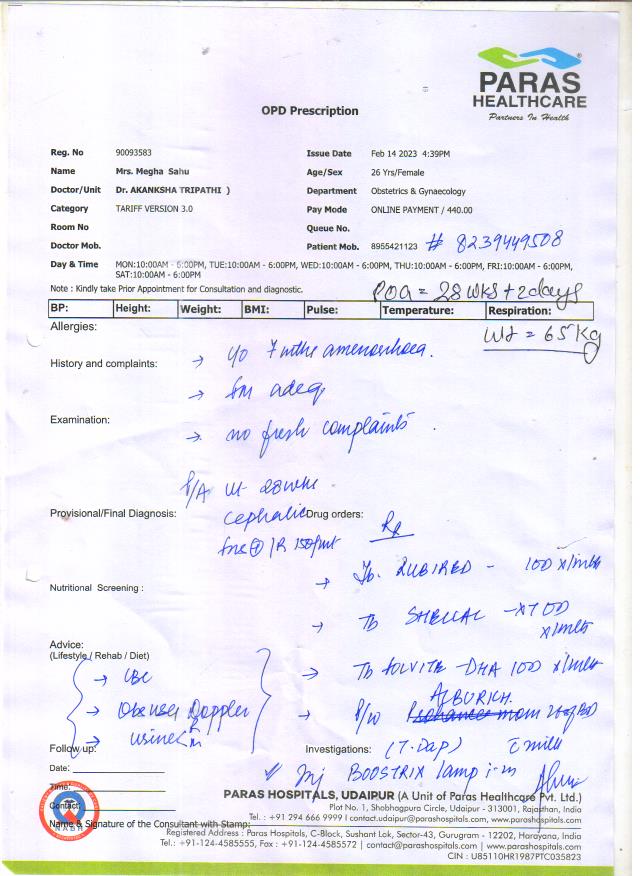 PARAS
HEALTHCARE
Partners In Health
OPD Prescription
Reg. No 90093583 Issue Date Feb 14 2023 4:39PM
Name Mrs. Megha Sahu Age/Sex 26 Yrs/Female
Doctor/Unit Dr. AKANKSHA TRIPATHI ) Department Obstetrics & Gynaecology
Category TARIFF VERSION 3.0 Pay Mode ONLINE PAYMENT / 440.00
Room No Queue No.
Doctor Mob. Patient Mob. 8955421123 # 8239449508
Day & Time MON:10:00AM - 6:00PM, TUE:10:00AM - 6:00PM, WED:10:00AM - 6:00PM, THU:10:00AM - 6:00PM, FRI:10:00AM - 6:00PM,
SAT:10:00AM - 6:00PM
Note : Kindly take Prior Appointment for Consultation and diagnostic.
POG = 28 wks + 2 days
BP: Height: Weight: BMI: Pulse: Temperature: Respiration:
Allergies:
Wt = 65 Kg
History and complaints: → 7 mths amenorrhoea.
→ fm adeq
Examination:
→ no fresh complaints.
P/A ut 28wks
Provisional/Final Diagnosis: cephalic Drug orders: Rx
Nutritional Screening :
→ Tb. RUBIRED - 1OD x 1mth
→ Tb SHELCAL - x1 OD
x 1mth
Advice:
(Lifestyle / Rehab / Diet)
→ CBC
→ Tb FOLVITE-DHA 1OD x 1mth
→ Doppler
→ urine R/M
Follow up: Investigations: (T-Dap) c milk
Date:
Time:
Contact:
✓ Inj BOOSTRIX 1amp i-m
PARAS HOSPITALS, UDAIPUR (A Unit of Paras Healthcare Pvt. Ltd.)
Plot No. 1, Shobhagpura Circle, Udaipur - 313001, Rajasthan, India
Tel. : +91 294 666 9999 I contact.udaipur@parashospitals.com, www.parashospitals.com
NABH
Name & Signature of the Consultant with Stamp:
Registered Address : Paras Hospitals, C-Block, Sushant Lok, Sector-43, Gurugram - 12202, Harayana, India
Tel.: +91-124-4585555, Fax : +91-124-4585572 | contact@parashospitals.com | www.parashospitals.com
CIN : U85110HR1987PTC035823